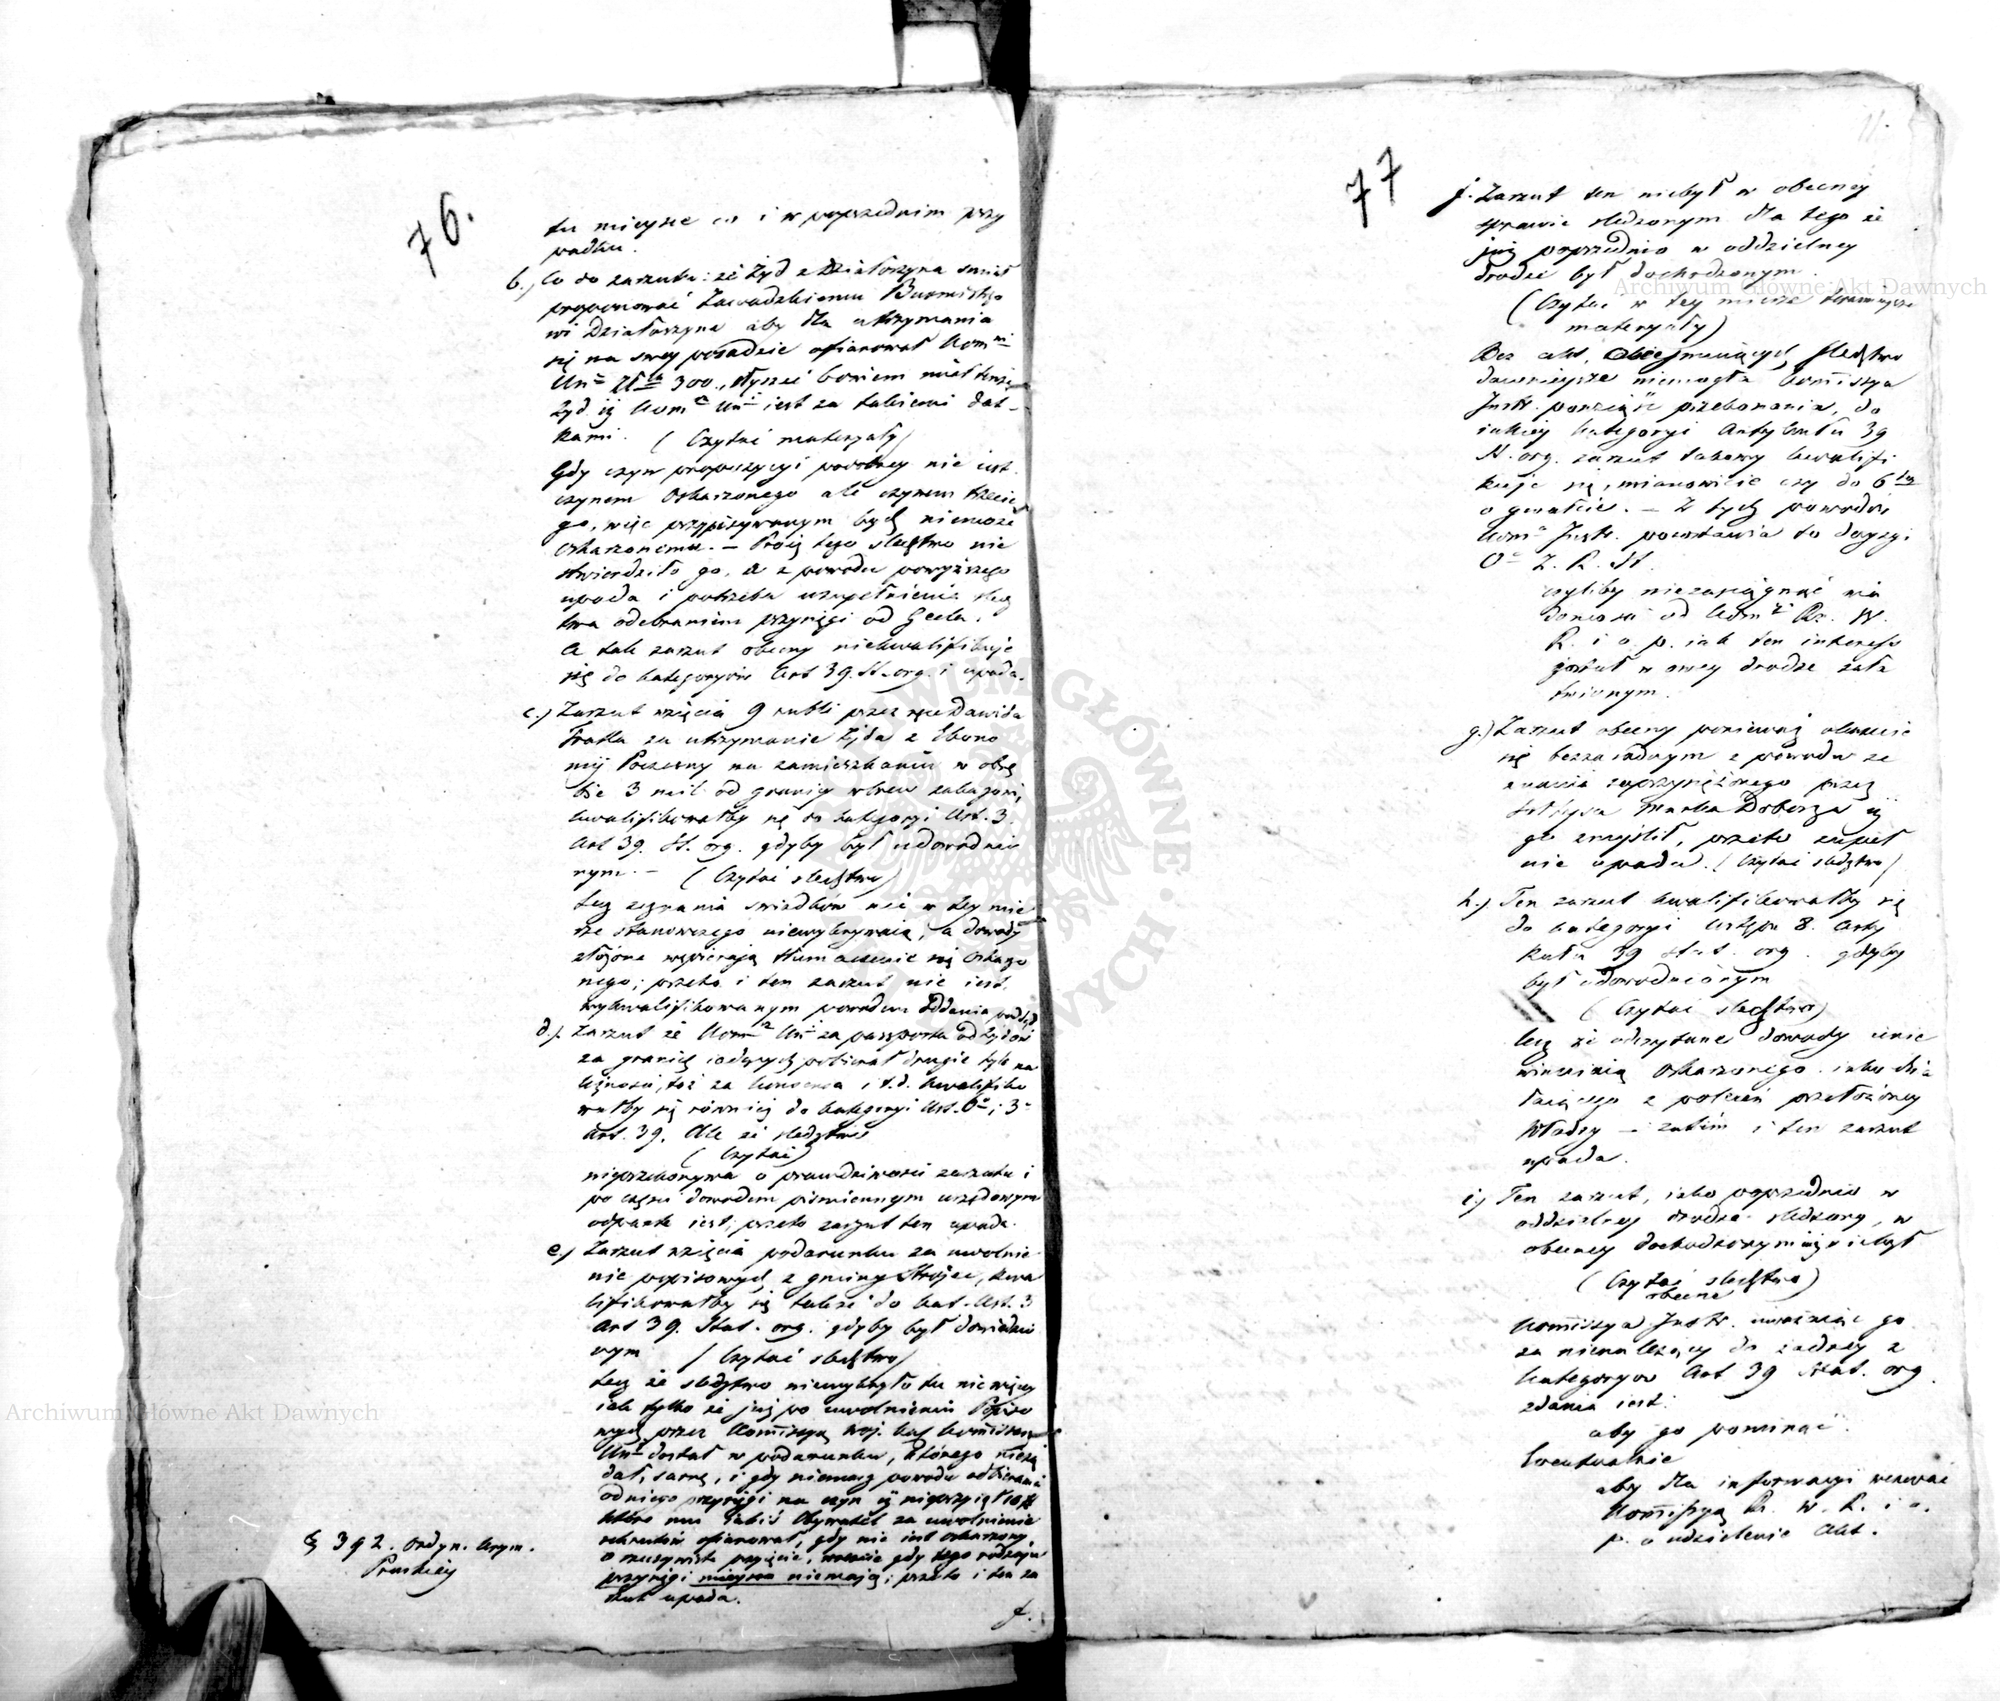 76.
tu mieysce co i w poprzednim przy
padku.
b.) Co do zarzutu: że Żyd z Działoszyna smiał
proponować Zawadzkiemu Burmistrzo
wi Działoszyna aby dla utrzymania
się na swey posadzie ofiarował Kom
Un 300, słyszeć bowiem miał tenże
Żyd iż Kom Un iest za takiemi dat-
kami. (Czytać materyały)
Gdy czyn propozycyi podobney nie iest
czynem Oskarzonego ale czynem trzecie
go, więc przypisywanym być niemoże
Oskarzonemu. — Prócz tego sledztwo nie
stwierdziło go, a z powodu powyższego
upada i potrzeba uzupełnienia sledz
twa odebraniem przysięgi od
A tak zarzut obecny niekwalifikuje
się do kategoryów Art 39. St. org. i upada.
c.) Zarzut wzięcia 9 rubli przez ręce Dawida
za utrzymanie Żyda z Ekono
mij Poczesny na zamieszkaniu w obrę
bie 3 mil od granicy wbrew zakazowi,
kwalifikowałby się do kategoryi Ust. 3.
Art 39. St. org. gdyby był udowodnio
nym. — (Czytać sledztwo)
Lecz zeznania swiadków nic w tey mie
rze stanowczego niewykrywaią, a dowody
złożone wspieraią tłumaczenie się Oskarzo
nego; przeto i ten zarzut nie iest
wykwalifikowanym powodem oddania pod Sąd
d.) Zarzut że Kom Un za passporta od Żydów
za granicę iadących pobierał drugie tyle na
leżności, toż za konsensa i t.d. kwalifiko
wałby się również do kategoryi Ust. 6 i 3
Art. 39. Ale że sledztwo
(Czytać)
nieprzekonywa o prawdziwości zarzutu i
po części dowodem pismiennym urzędowym
odparte iest, przeto zarzut ten upada.
e.) Zarzut wzięcia podarunku za uwolnie
nie popisowych z gminy Strojec, kwa
lifikowałby się także do kat. Ust. 3
Art 39. Stat. org. gdyby był dowiedzio
nym (Czytać sledztwo)
Lecz że sledztwo niewykryło tu nic więcey
iak tylko że już po uwolnieniu Popiso
wych przez Kommissyą Woj. Kommissarz
Un dostał w podarunku, którego nieżą
dał, sarnę, i gdy niemasz powodu odbierania
od niego przysięgi na czyn iż nieprzyiął
które mu iakiś Obywatel za uwolnienie
rekrutów ofiarował, gdy nie iest oskarzony
o rzeczywiste przyięcie, wreszcie gdy tego rodzaju
przysięgi mieysca niemaią; przeto i ten za
rzut upada.
§ 392. Ordyn. krym.
Pruskiey
f.
77
11.
f. Zarzut ten niebył w obecney
sprawie sledzonym dla tego że
już poprzednio w oddzielney
drodze był dochodzonym.
(Czytać w tey mierze
materyały)
Bez akt, obejmujących sledztwo
dawnieysze niemogła Kommissya
Instr. powziąść przekonania, do
iakiey kategoryi Artykułu 39
St. org. zarzut takowy kwalifi
kuje się, mianowicie czy do 6
o gwałcie. — Z tych powodów
Kom Instr. pozostawia to decyzyi
O Z. R. St.
czyliby niezasiągnąć wia
domości od Kom Rz. W.
R. i o. p. iak ten interess
został w owey drodze zała
twionym.
g.) Zarzut obecny ponieważ okazuie
się bezzasadnym z powodu ze
znania zaprzysiężonego przez
Marka iż
go zmyslił, przeto zupeł
nie upada. (Czytać sledztwo)
h.) Ten zarzut kwalifikowałby się
do kategoryi Ustępu 8. Arty
kułu 39 stat. org. gdyby
był udowodnionym
(Czytać sledztwo)
lecz że odczytane dowody unie
winniaią Oskarzonego iako dzia
łaiącego z poleceń przełożoney
Władzy — zatém i ten zarzut
upada.
i.) Ten zarzut, iako poprzednio w
oddzielney drodze sledzony, w
obecney dochodzonym iuż niebył
(Czytać sledztwo)
obecne
Kommissya Instr. uważaiąc go
za nienależący do żadney z
kategoryów Art 39 Stat. org.
zdania iest:
aby go pominąć.
Ewentualnie
aby dla informacyi wezwać
Kommissyą Rz. W. R. i o.
p. o udzielenie Akt.
Archiwum Główne Akt Dawnych
Archiwum Główne Akt Dawnych
Archiwum Główne Akt Dawnych